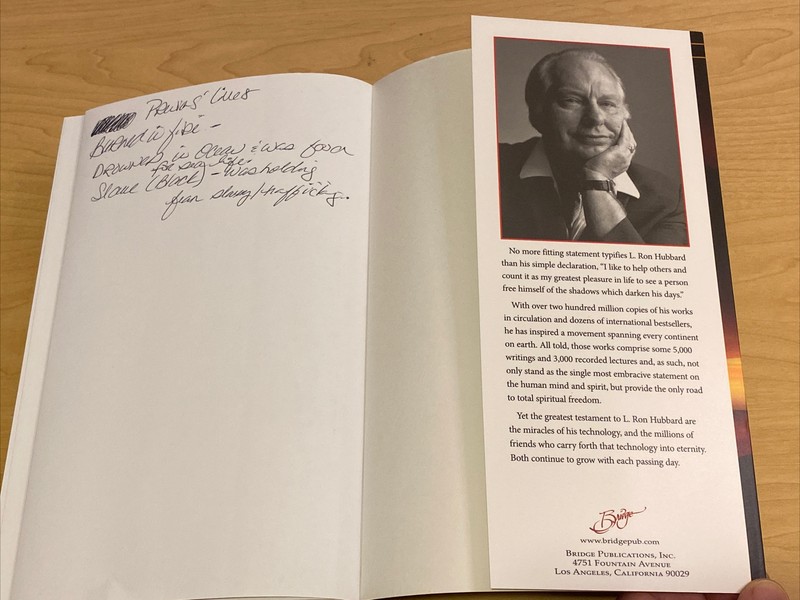 Lives
Burned in fire -
DROWNED in Ocean & was food
for sea life.
Slave (Black) - was holding
from slavery/trafficking..
No more fitting statement typifies L. Ron Hubbard
than his simple declaration, "I like to help others and
count it as my greatest pleasure in life to see a person
free himself of the shadows which darken his days."
With over two hundred million copies of his works
in circulation and dozens of international bestsellers,
he has inspired a movement spanning every continent
on earth. All told, those works comprise some 5,000
writings and 3,000 recorded lectures and, as such, not
only stand as the single most embracive statement on
the human mind and spirit, but provide the only road
to total spiritual freedom.
Yet the greatest testament to L. Ron Hubbard are
the miracles of his technology, and the millions of
friends who carry forth that technology into eternity.
Both continue to grow with each passing day.
Bridge
www.bridgepub.com
BRIDGE PUBLICATIONS, INC.
4751 FOUNTAIN AVENUE
LOS ANGELES, CALIFORNIA 90029